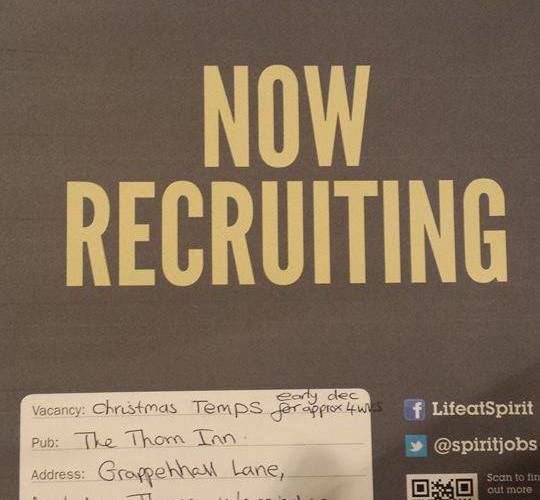 NOW
RECRUITING
Vacancy: Christmas Temps early dec
for approx 4 wks
Pub: The Thorn Inn
Address: Grappenhall Lane,
LifeatSpirit
@spiritjobs
Scan to fin
out more